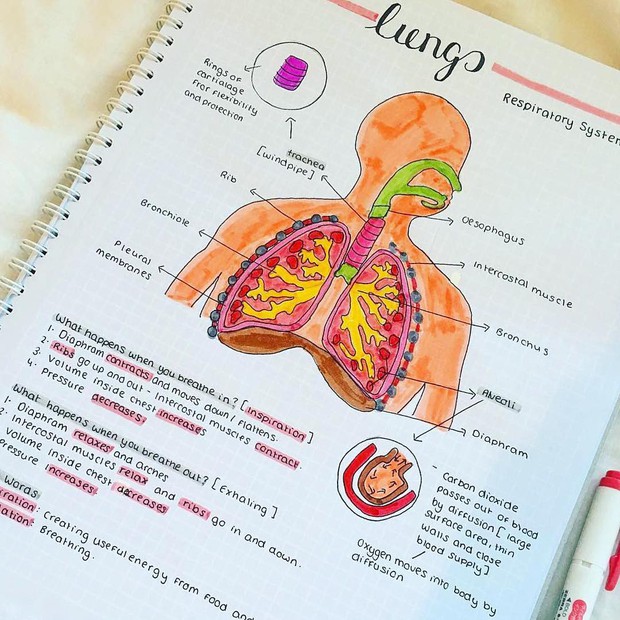 lungs
Respiratory System
Rings of
cartialage
fror flexibility
and protection
trachea
[windpipe]
Rib
Bronchiole
Pleural
membranes
Oesophagus
Intercostal muscle
Bronchus
Alveoli
Diaphram
What happens when you breathe in? [inspiration]
1. Diaphram contracts and moves down/flattens.
2. Ribs go up and out - Intercostal muscles contract.
3. Volume inside chest increases
4. Pressure decreases.
What happens when you breathe out? [Exhaling]
1. Diaphram relaxes and arches
2. Intercostal muscles relax and ribs go in and down.
Volume inside chest decreases
Pressure increases.
words
: Creating useful energy from food and
: Breathing.
- Carbon dioxide
passes out of blood
by diffusion [large
surface area, thin
walls and close
blood supply]
Oxygen moves into body by
diffusion
BOLD